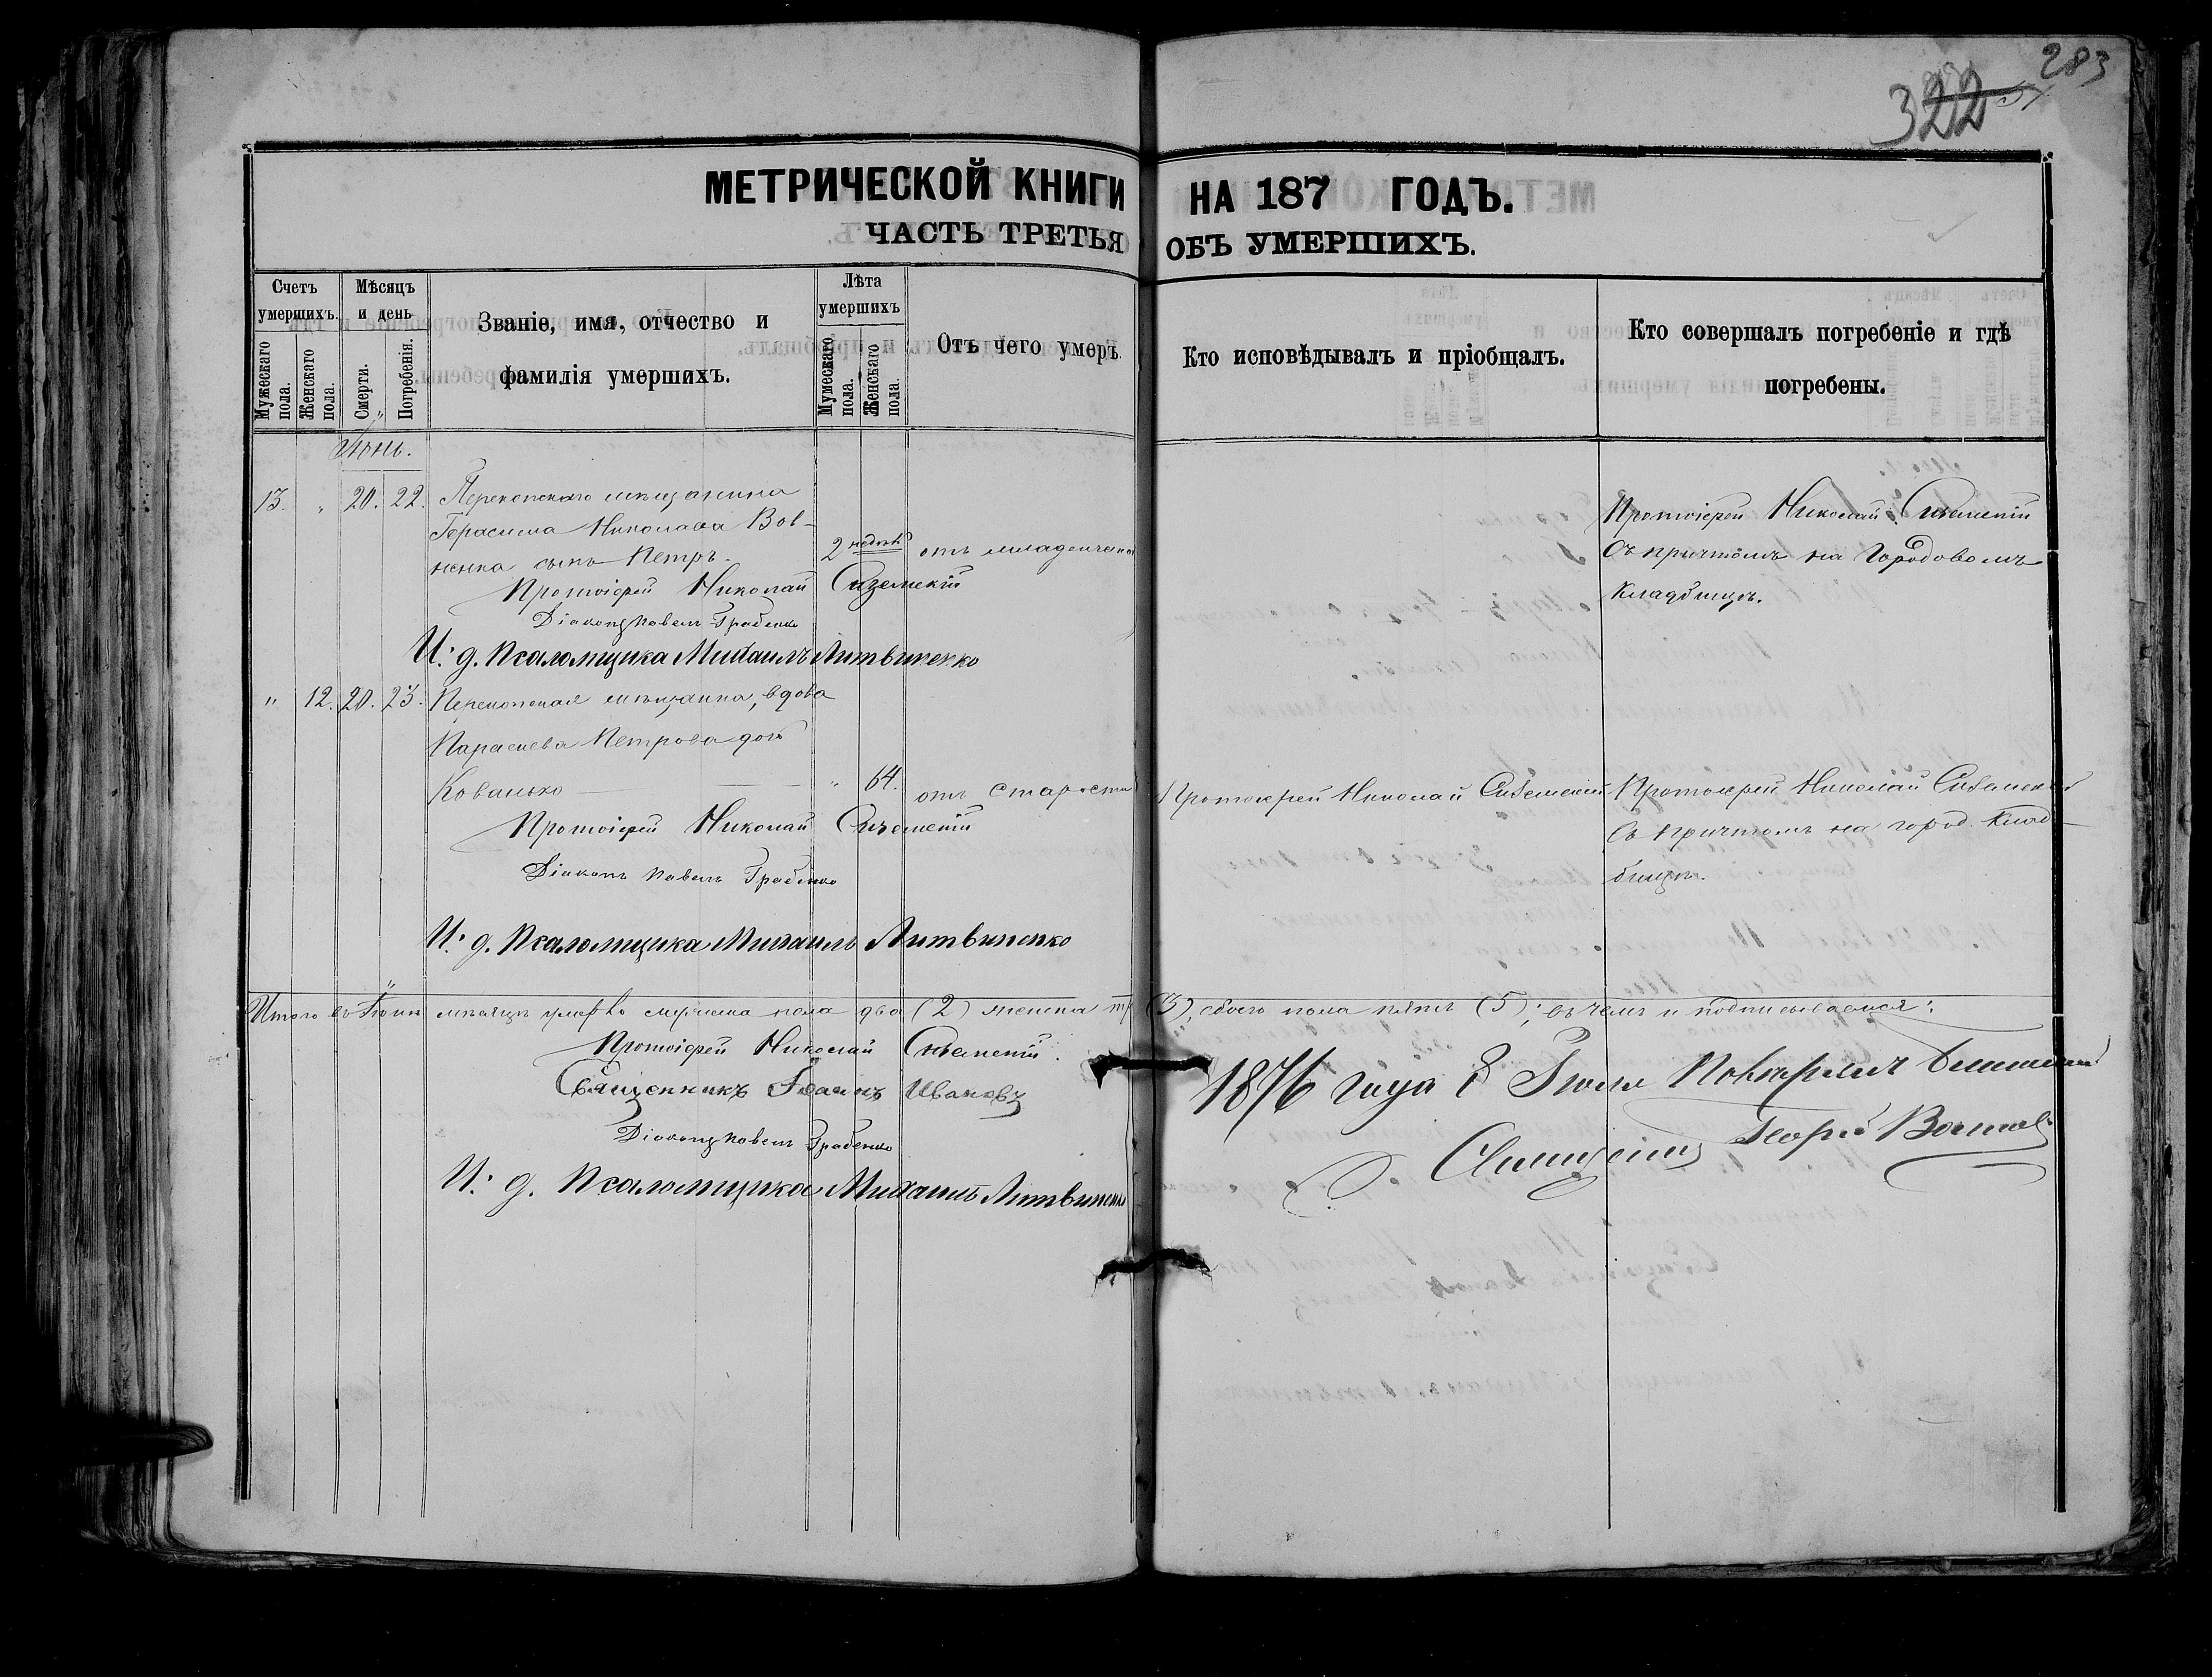 283
322
МЕТРИЧЕСКОЙ КНИГИ НА 187 ГОДЪ.
ЧАСТЬ ТРЕТЬЯ ОБЪ УМЕРШИХЪ.
Счетъ умершихъ.
Мужескаго пола.
Женскаго пола.
Мѣсяцъ и день
Смерти.
Погребенія.
Званіе, имя, отчество и
фамилія умершихъ.
Лѣта умершихъ
Мужескаго пола.
Женскаго пола.
Отъ чего умеръ.
Кто исповѣдывалъ и пріобщалъ.
Кто совершалъ погребеніе и гдѣ
погребены.
Іюнь.
13. " 20. 22. Перекопскаго мѣщанина
Герасима Николаева Вов-
ненка сынъ Петръ. 2 недѣль отъ младенческой
Протоіерей Николай Сиземскій
съ причтомъ на Городовомъ
кладбищѣ.
Протоіерей Николай Сиземскій
Діаконъ Павелъ Грабенко
И. д. Псаломщика Михаилъ Литвиненко
" 12. 20. 23. Перекопская мѣщанка, вдова
Параскева Петрова дочь
Кованько " 64. отъ старости
Протоіерей Николай Сиземскій
Протоіерей Николай Сиземскій
съ причтомъ на город. клад-
бищѣ.
Протоіерей Николай Сиземскій
Діаконъ Павелъ Грабенко
И. д. Псаломщика Михаилъ Литвиненко
Итого въ Іюнѣ мѣсяцѣ умерло мужеска пола два (2) женска три (3), обоего пола пять (5); въ чемъ и подписываемся:
Протоіерей Николай Сиземскій.
Священникъ Іоаннъ Ивановъ
Діаконъ Павелъ Грабенко
И. д. Псаломщика Михаилъ Литвиненко
1876 года 8 Іюля
Священникъ Георгій